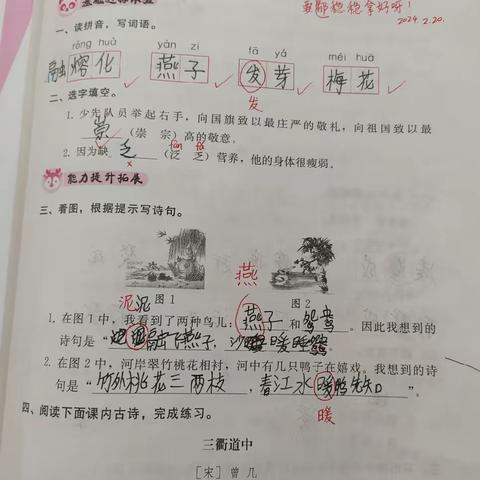 基础达标乐园
稳稳拿好呀!
2024.2.20.
一、读拼音,写词语。
róng huà yàn zi fā yá méi huā
融 熔化 燕子 发芽 梅花
发
二、选字填空。
1. 少先队员举起右手,向国旗致以最庄严的敬礼,向祖国致以最
崇(崇 宗)高的敬意。
fàn fá
2. 因为缺乏(泛 乏)营养,他的身体很瘦弱。
能力提升拓展
三、看图,根据提示写诗句。
图1 图2
泥泥 燕
1. 在图1中,我看到了两种鸟儿:燕子和鸳鸯。因此我想到的
诗句是“泥融飞燕子,沙暖睡鸳鸯”
2. 在图2中,河岸翠竹桃花相衬,河中有几只鸭子在嬉戏。我想到的诗
句是“竹外桃花三两枝,春江水暖鸭先知”
暖
四、阅读下面课内古诗,完成练习。
三衢道中
[宋]曾几